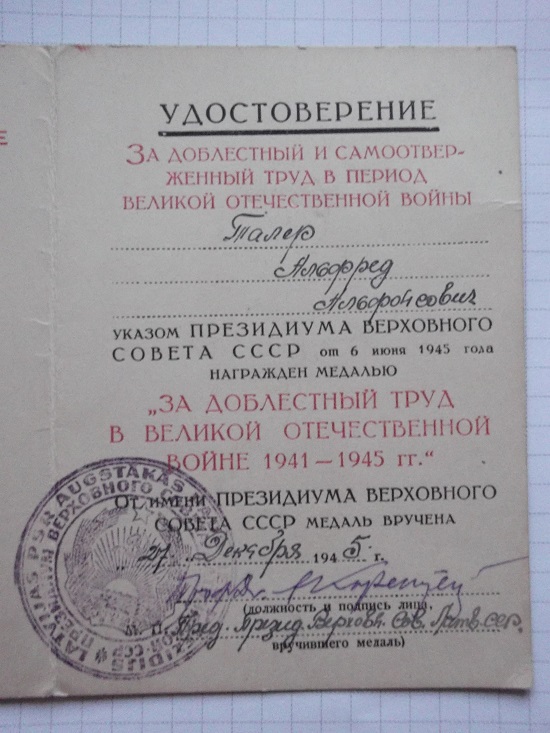 Е
УДОСТОВЕРЕНИЕ
ЗА ДОБЛЕСТНЫЙ И САМООТВЕР-
ЖЕННЫЙ ТРУД В ПЕРИОД
ВЕЛИКОЙ ОТЕЧЕСТВЕННОЙ ВОЙНЫ
Талер
Альфред
Альфонсович
УКАЗОМ ПРЕЗИДИУМА ВЕРХОВНОГО
СОВЕТА СССР от 6 июня 1945 года
НАГРАЖДЕН МЕДАЛЬЮ
„ЗА ДОБЛЕСТНЫЙ ТРУД
В ВЕЛИКОЙ ОТЕЧЕСТВЕННОЙ
ВОЙНЕ 1941—1945 гг.“
От имени ПРЕЗИДИУМА ВЕРХОВНОГО
СОВЕТА СССР МЕДАЛЬ ВРУЧЕНА
27 Декабря 1945 г.
(должность и подпись лица,
М. П. Пред. През. Верховн. Сов. Латв. сср.
вручившего медаль)
LATVIJAS PSR AUGSTĀKĀS
ПРЕЗИДИУМ ВЕРХОВНОГО